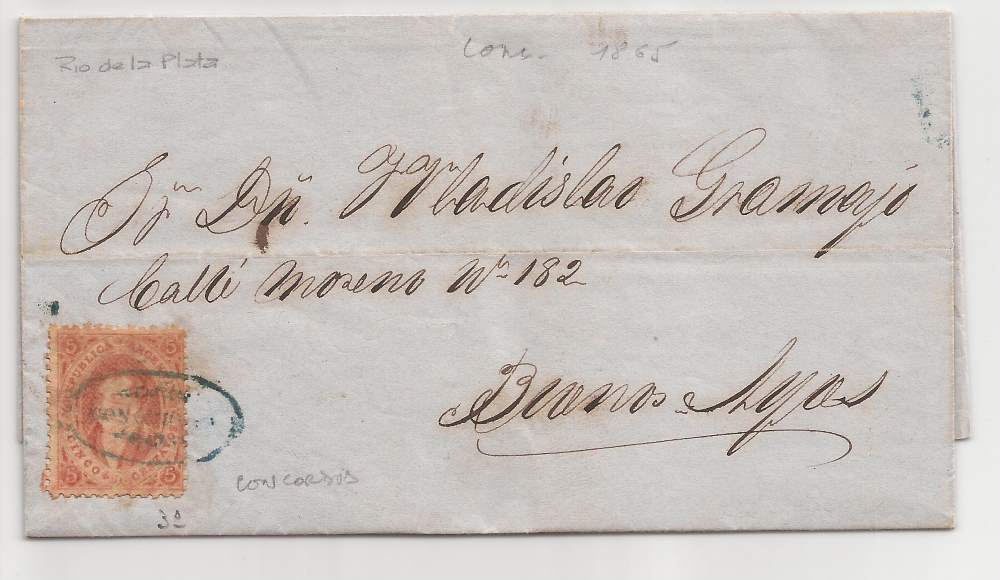 Rio de la Plata
Conc. 1865
Sr. Dn. Wladislao Gramajo
Calle Moreno No. 182
Buenos Ayes
5 5
REPUBLICA
CINCO
5 5
CONCORDIA
3a